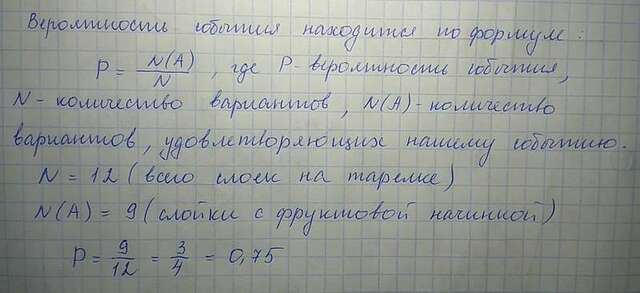 Вероятность события находится по формуле:
P = N(A)/N, где P - вероятность события,
N - количество вариантов, N(A) - количество
вариантов, удовлетворяющих нашему событию.
N = 12 (всего слоек на тарелке)
N(A) = 9 (слойки с фруктовой начинкой)
P = 9/12 = 3/4 = 0,75